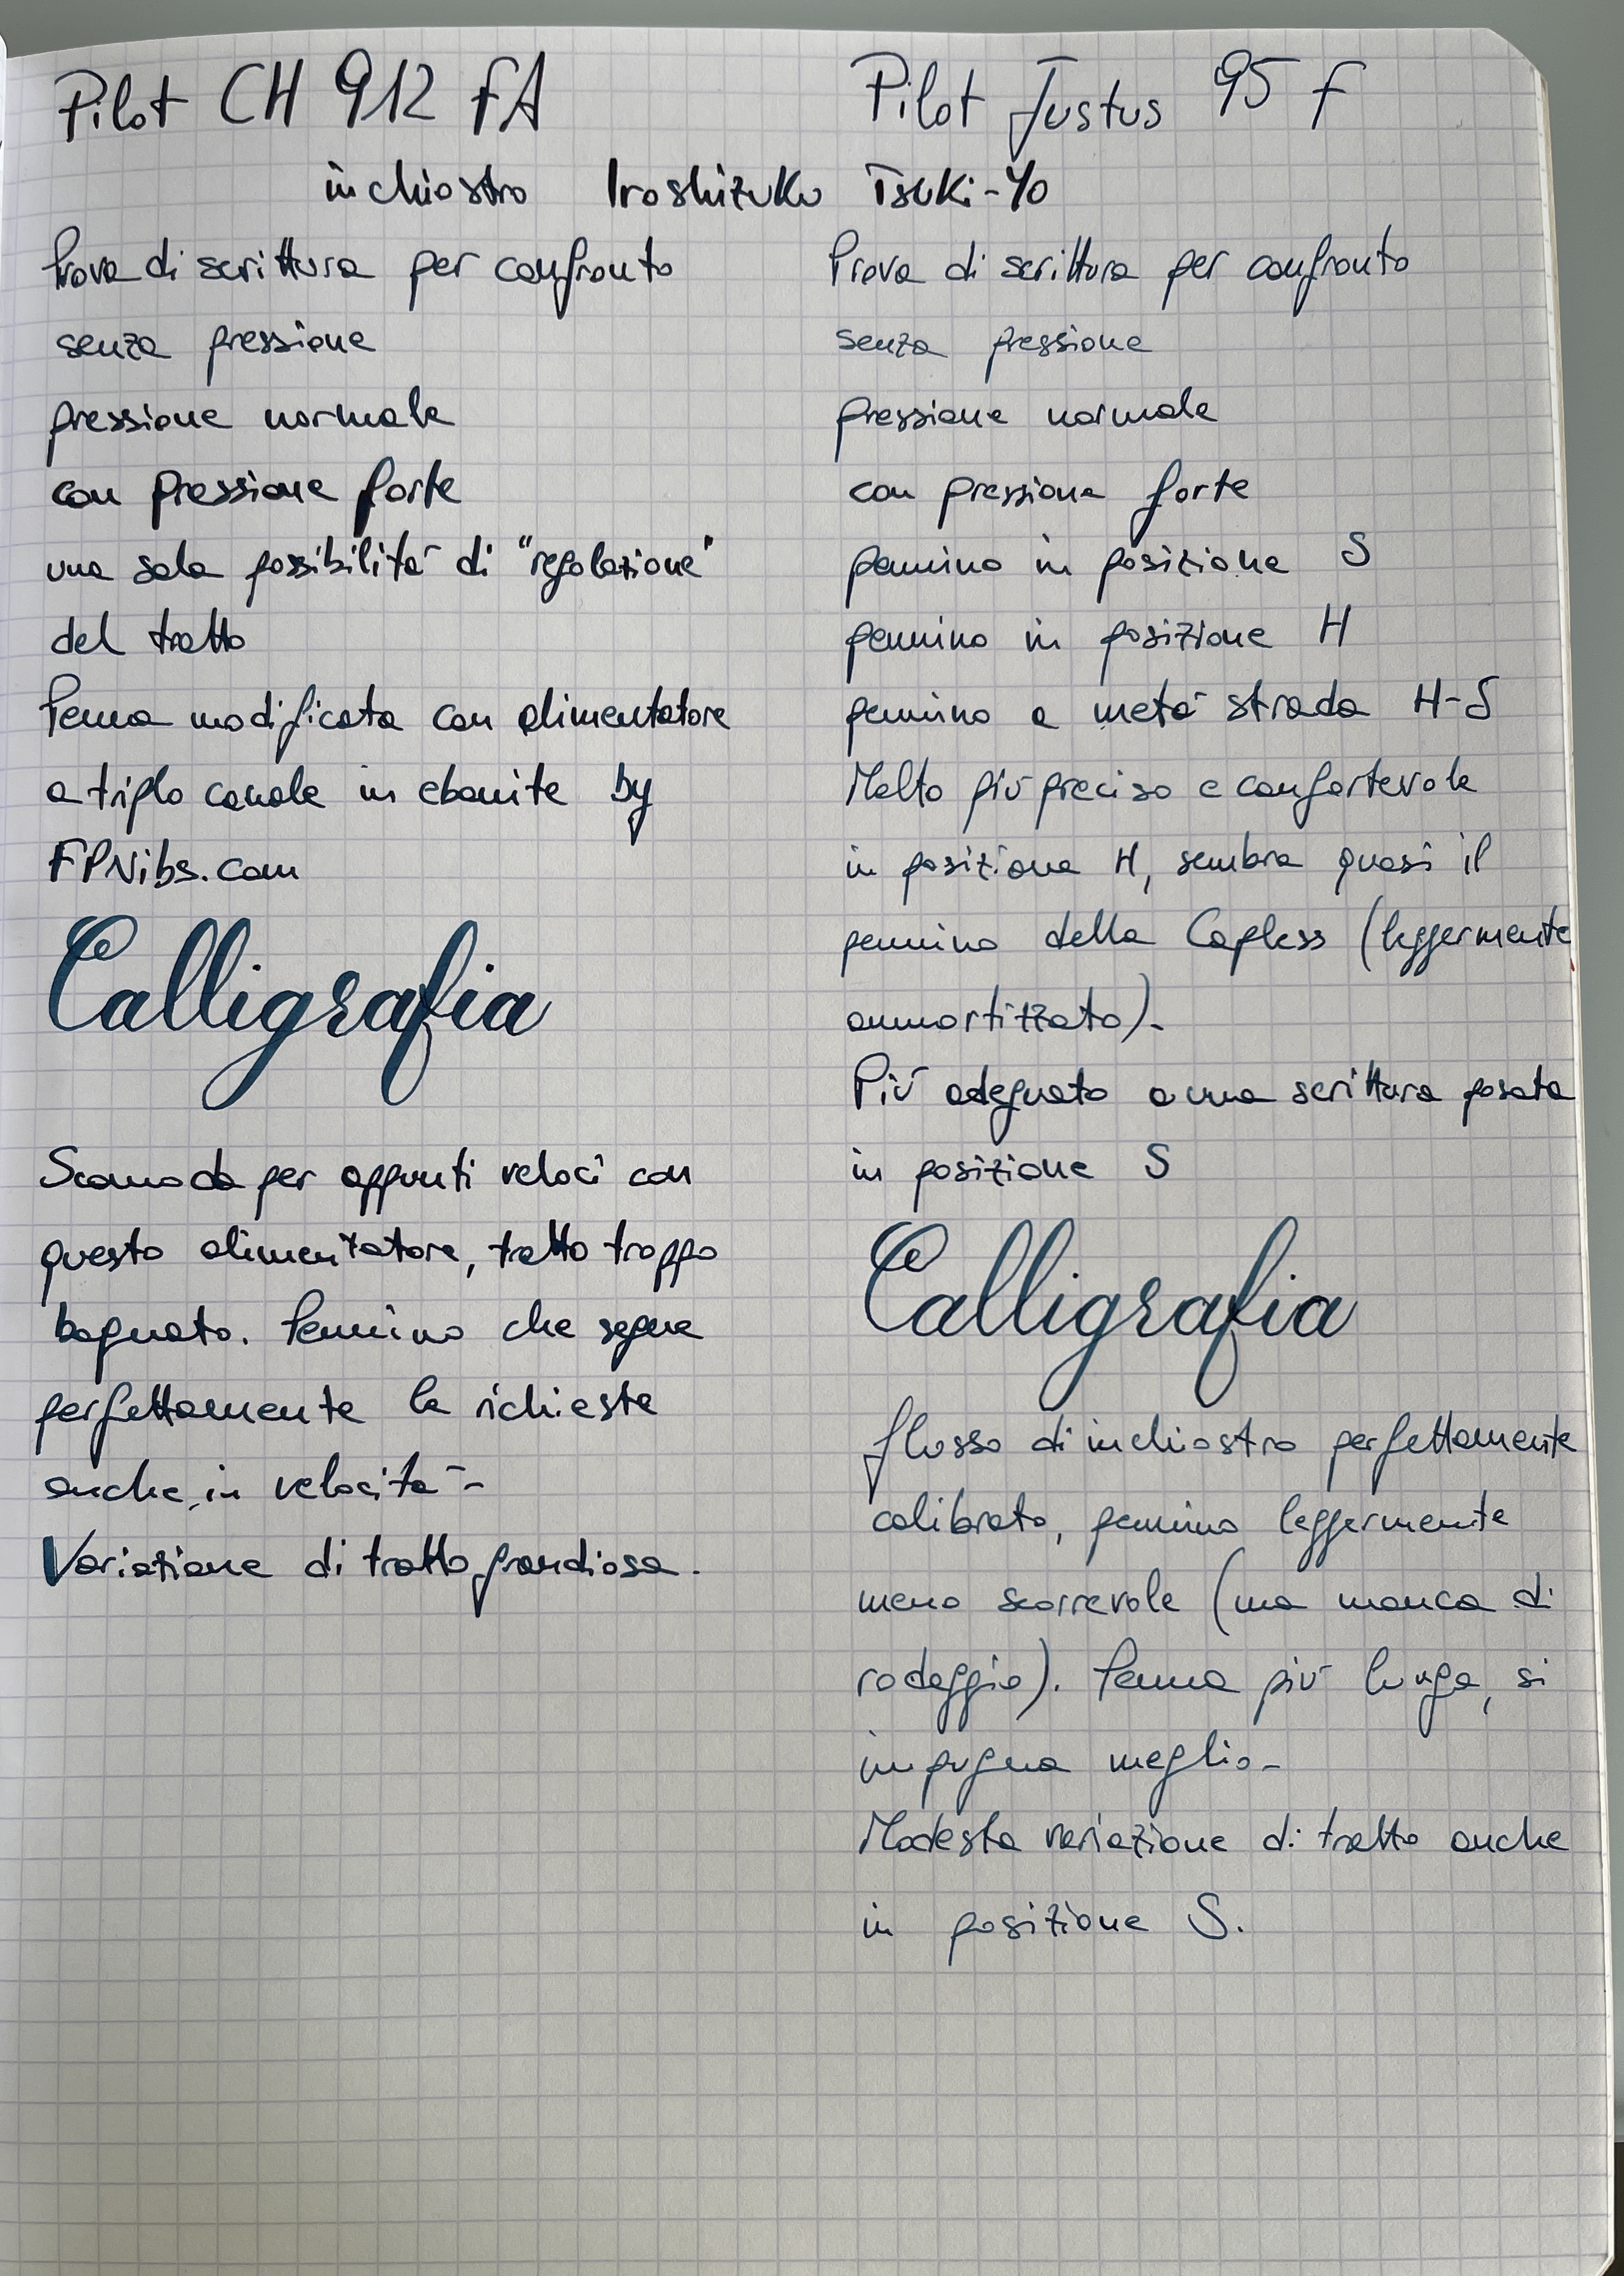 Pilot CH 912 FA
Pilot Justus 95 F
inchiostro Iroshizuku Tsuki-Yo
Prova di scrittura per confronto
senza pressione
pressione normale
con pressione forte
una sola possibilità di "regolazione"
del tratto
Penna modificata con alimentatore
a triplo canale in ebanite by
FPNibs.com
Calligrafia
Scomoda per appunti veloci con
questo alimentatore, tratto troppo
bagnato. Pennino che segue
perfettamente le richieste
anche in velocità-
Variazione di tratto grandiosa.
Prova di scrittura per confronto
senza pressione
pressione normale
con pressione forte
pennino in posizione S
pennino in posizione H
pennino a metà strada H-S
Molto più preciso e confortevole
in posizione H, sembra quasi il
pennino della Capless (leggermente
ammortizzato).
Più adeguato a una scrittura posata
in posizione S
Calligrafia
flusso di inchiostro perfettamente
calibrato, pennino leggermente
meno scorrevole (ma manca di
rodaggio). Penna più lunga, si
impugna meglio-
Modesta variazione di tratto anche
in posizione S.